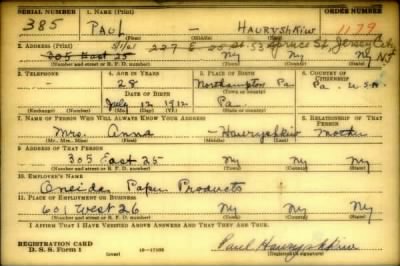 SERIAL NUMBER 1. NAME (Print) ORDER NUMBER
385 PAUL - HAURYSHKIW 1179
(First) (Middle) (Last)
2. ADDRESS (Print) 5/1/61 227 E 25 St. 53 Spruce St. Jersey City
305 East 25 NY NY NJ
(Number and street or R. F. D. number) (Town) (County) (State)
3. TELEPHONE 4. AGE IN YEARS 5. PLACE OF BIRTH 6. COUNTRY OF CITIZENSHIP
28 Northampton Pa Pa. U.S.A.
DATE OF BIRTH (Town or county)
July 12 1912 Pa.
(Exchange) (Number) (Mo.) (Day) (Yr.) (State or country)
7. NAME OF PERSON WHO WILL ALWAYS KNOW YOUR ADDRESS 8. RELATIONSHIP OF THAT PERSON
Mrs. Anna - Hauryshkiw Mother
(Mr., Mrs., Miss) (First) (Middle) (Last)
9. ADDRESS OF THAT PERSON
305 East 25 NY NY NY
(Number and street or R. F. D. number) (Town) (County) (State)
10. EMPLOYER'S NAME
Oneida Paper Products
11. PLACE OF EMPLOYMENT OR BUSINESS
601 West 26 NY NY NY
(Number and street or R. F. D. number) (Town) (County) (State)
I AFFIRM THAT I HAVE VERIFIED ABOVE ANSWERS AND THAT THEY ARE TRUE.
REGISTRATION CARD
D. S. S. Form 1 (over) 16-17105 Paul Hauryshkiw
(Registrant's signature)